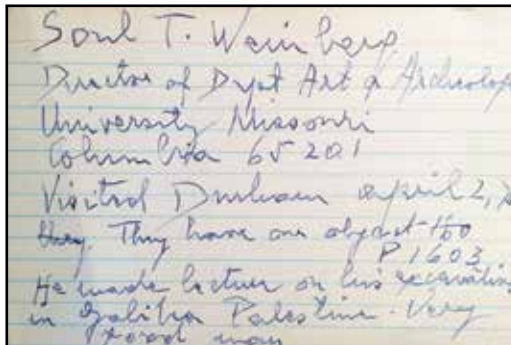 Soul T. Weinberg
Director of Dept Art & Archeolog
University Missouri
Columbia 65201
Visited Durham april 2,
they. They have one object too
P 1603
He made lecture on his excavation
in Palestine. Very
good man